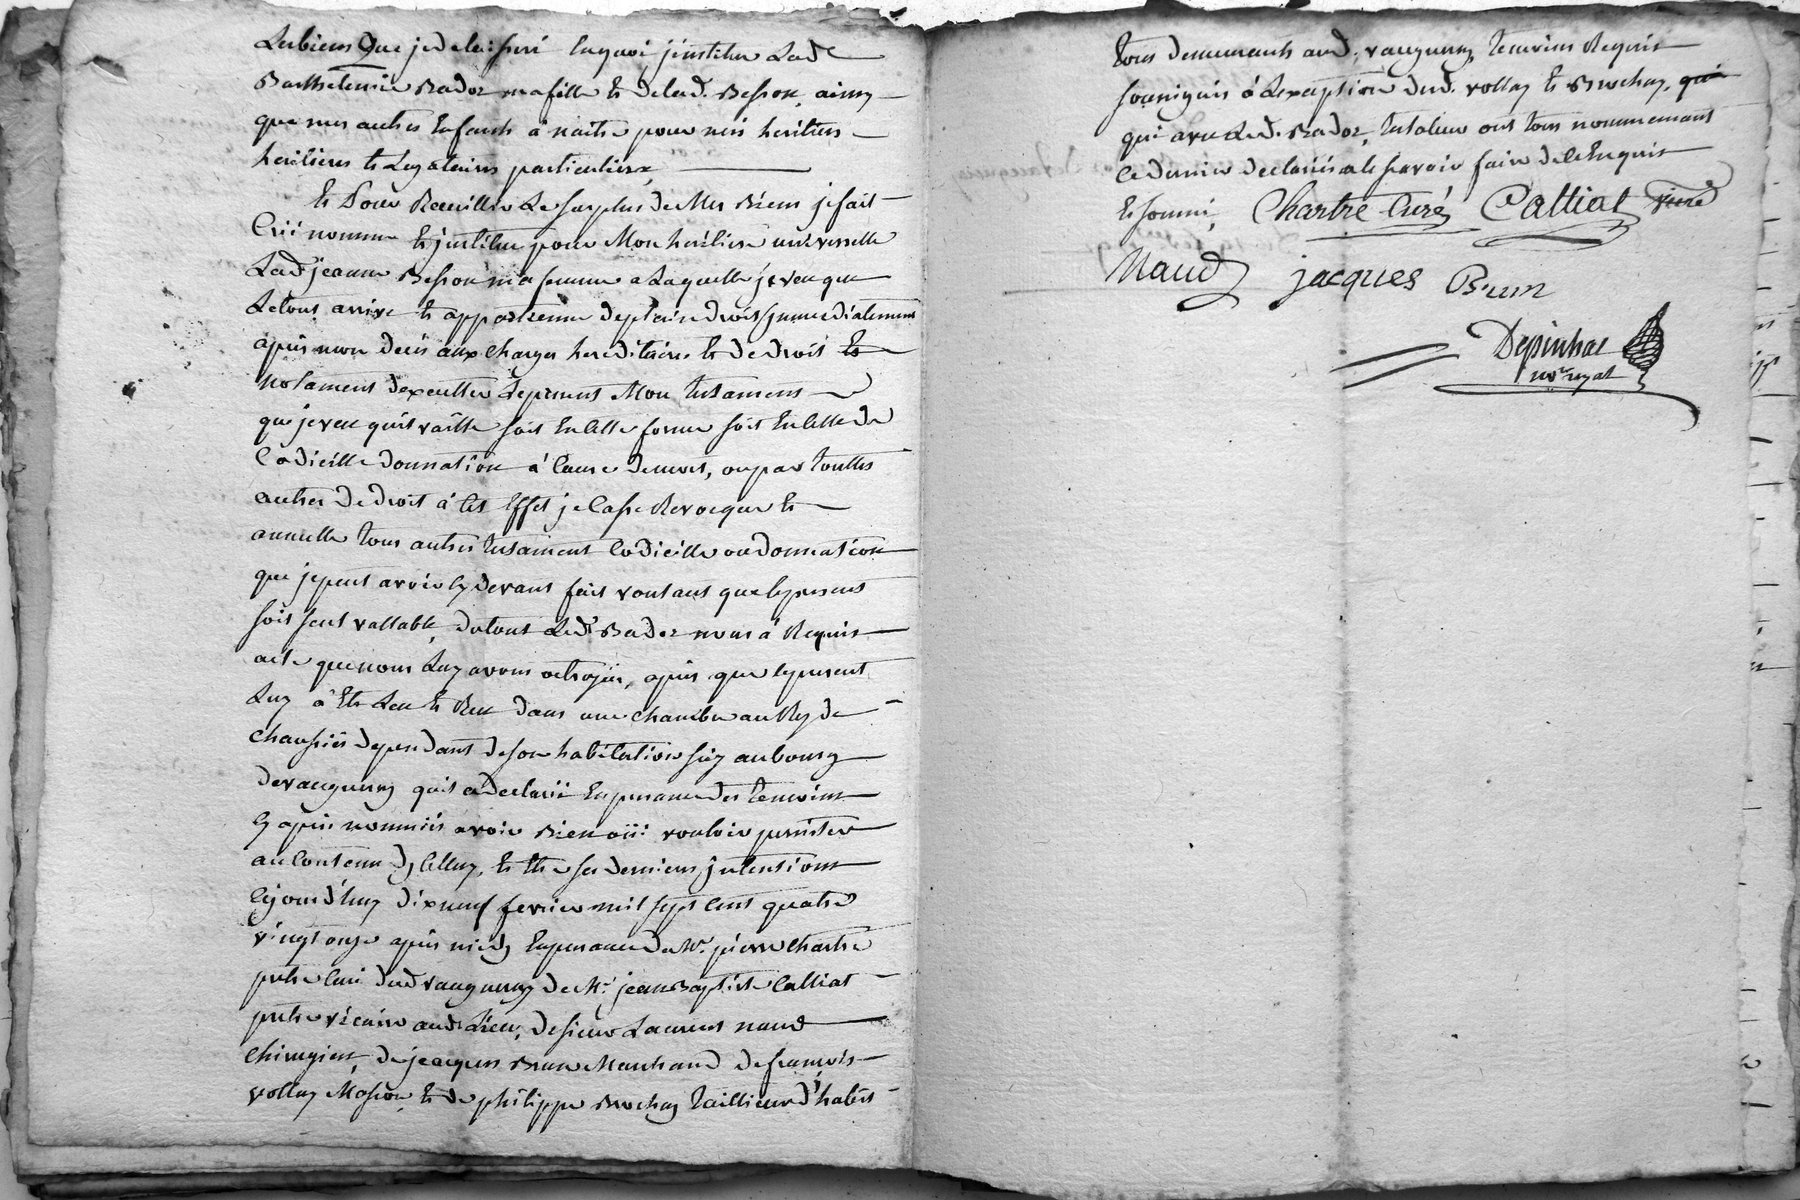 Les biens que je delaisseré En quoi j'institue Lade
Barthelemie Bador ma fille Et delad. Besson, ainsy
que mes autres Enfants á naitre pour mes heritiers
heritieres Et Legataires particuliers,
Et Pour Recueillir Le surplus de Mes Biens je fait
Créé nomme Et jnstitue pour Mon heritiere universelle
Lad jeanne Besson ma femme a Laquelle je veu que
Le tout arrive Et appartienne de plain droit jmmediatement
apres mon decés aux charges hereditaires Et de droit Et
notament d'executter Le present Mon testament
que je veu qu'il vaille soit En cette forme soit En celle de
Codicille donnation á cause de mort, ou par touttes
autres de droit á cet Effet je Casse Revocque Et
annulle tous autres testament Codicille ou donnation
que je peut avoir cy devant fait voulant que le present
soit seul vallable, du tout Ledt Bador nous á Requis
acte que nous Luy avons octroyés, apres que le present
Luy á Eté Leu Et Reu dans une chambre au Rez de
chaussée dependant de son habitation size au bourg
de vaugneray qu'il a declaré En presance des temoins
cy apres nommés avoir Bien oüi vouloir persister
au contenu dycelluy, Et Etre ses derniers jntentions
Cejourd'huy dixneuf fevrier mil sept cent quatre
vingt onze apres midy En presance de Mr. pierre chartre
pretre curé dud vaugneray de Mr. jean Baptiste Calliat
pretre vicaire aud. Lieu, de sieur Laurent naud
chirugien, de jacques Brun Marchand de françois
vollay Masson, Et de philippe Brochay tailleur d'habits
tous demeurants aud. vaugneray, temoins Requis
soussignés á L'exception dud. vollay Et Brochay, qui
qui avec Led. Bador, testateur ont tous nommement
ce dernier declarés ne le savoir faire de ce Enquis
Et sommé, Chartre Curé Calliat vicre
Naud jacques Brun
Depinhac
nore royal